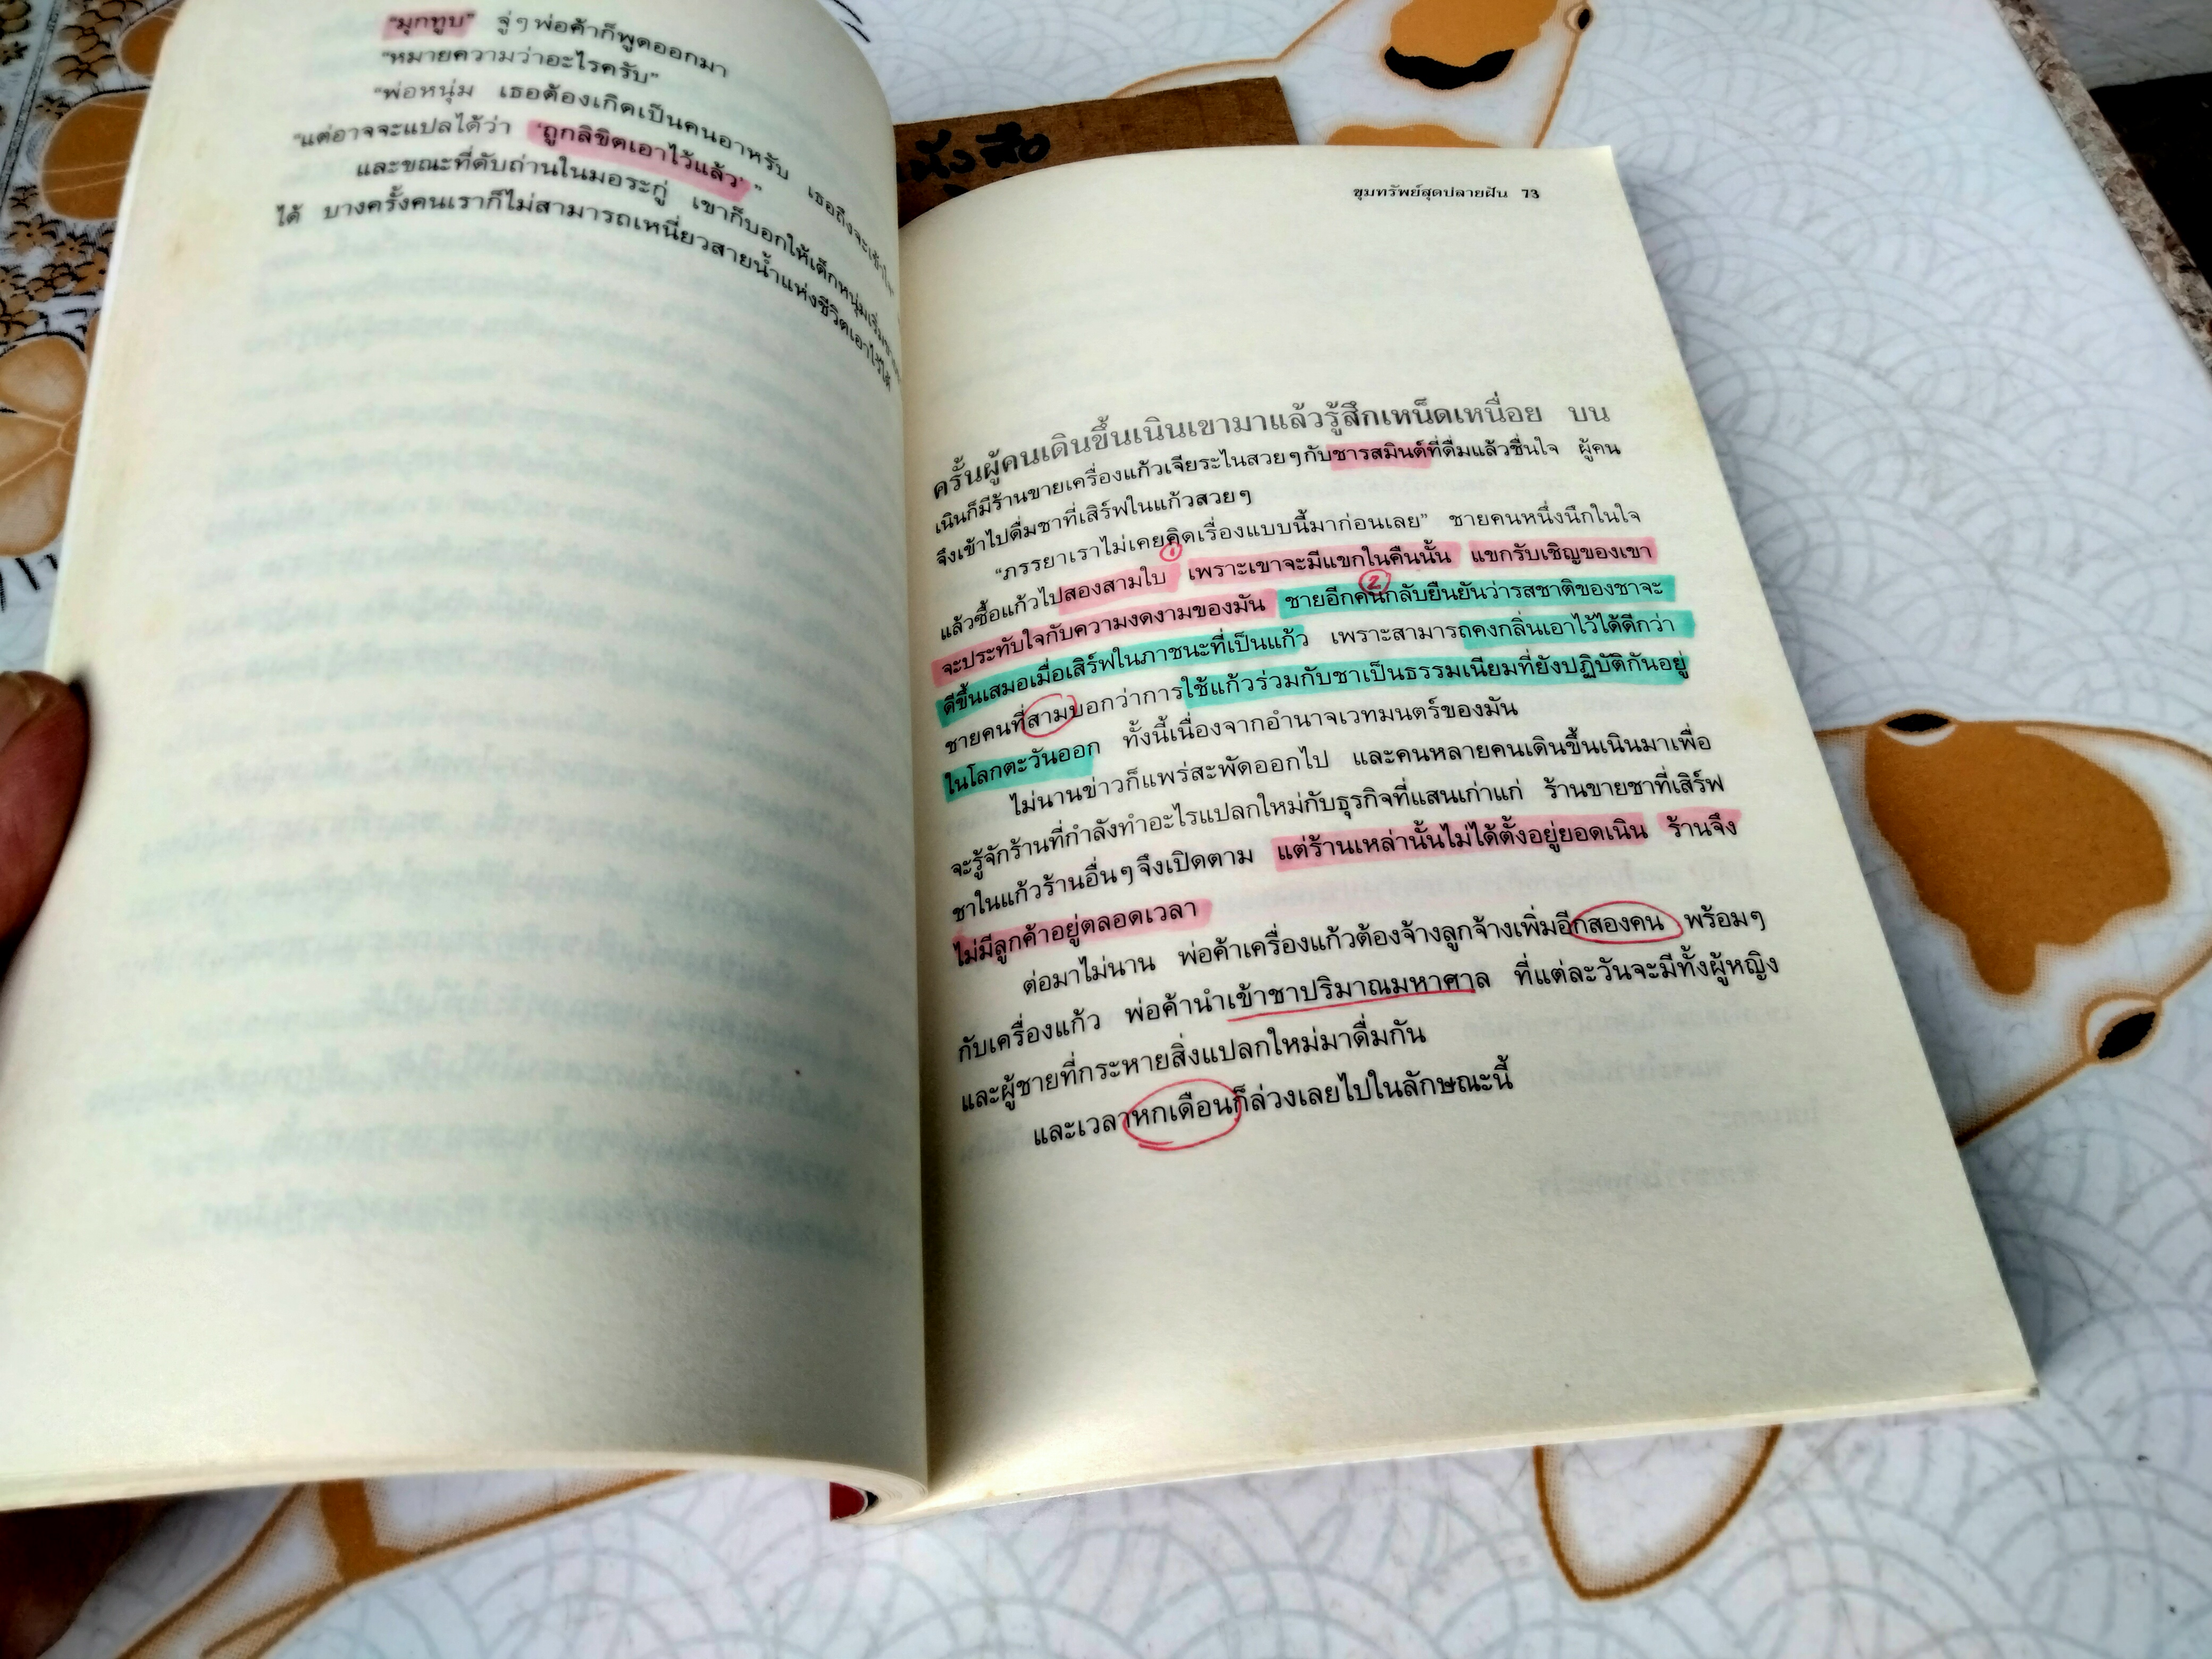 “มุกทูบ” จู่ๆ พ่อค้าก็พูดออกมา
“หมายความว่าอะไรครับ”
“พ่อหนุ่ม เธอต้องเกิดเป็นคนอาหรับ เธอถึงจะเข้าใจ
“แต่อาจจะแปลได้ว่า ‘ถูกลิขิตเอาไว้แล้ว’ ”
และขณะที่ดับถ่านในมอระกู่ เขาก็บอกให้เด็กหนุ่มเริ่ม
ได้ บางครั้งคนเราก็ไม่สามารถเหนี่ยวสายน้ำแห่งชีวิตเอาไว้ได้
หนังสือ
ขุมทรัพย์สุดปลายฝัน 73
ครั้นผู้คนเดินขึ้นเนินเขามาแล้วรู้สึกเหน็ดเหนื่อย บน
เนินก็มีร้านขายเครื่องแก้วเจียระไนสวยๆ กับชารสมินต์ที่ดื่มแล้วชื่นใจ ผู้คน
จึงเข้าไปดื่มชาที่เสิร์ฟในแก้วสวยๆ
“ภรรยาเราไม่เคยคิดเรื่องแบบนี้มาก่อนเลย” ชายคนหนึ่งนึกในใจ
1
แล้วซื้อแก้วไปสองสามใบ เพราะเขาจะมีแขกในคืนนั้น แขกรับเชิญของเขา
2
จะประทับใจกับความงดงามของมัน ชายอีกคนกลับยืนยันว่ารสชาติของชาจะ
ดีขึ้นเสมอเมื่อเสิร์ฟในภาชนะที่เป็นแก้ว เพราะสามารถคงกลิ่นเอาไว้ได้ดีกว่า
ชายคนที่สามบอกว่าการใช้แก้วร่วมกับชาเป็นธรรมเนียมที่ยังปฏิบัติกันอยู่
ในโลกตะวันออก ทั้งนี้เนื่องจากอำนาจเวทมนตร์ของมัน
ไม่นานข่าวก็แพร่สะพัดออกไป และคนหลายคนเดินขึ้นเนินมาเพื่อ
จะรู้จักร้านที่กำลังทำอะไรแปลกใหม่กับธุรกิจที่แสนเก่าแก่ ร้านขายชาที่เสิร์ฟ
ชาในแก้วร้านอื่นๆ จึงเปิดตาม แต่ร้านเหล่านั้นไม่ได้ตั้งอยู่ยอดเนิน ร้านจึง
ไม่มีลูกค้าอยู่ตลอดเวลา
ต่อมาไม่นาน พ่อค้าเครื่องแก้วต้องจ้างลูกจ้างเพิ่มอีกสองคน พร้อมๆ
กับเครื่องแก้ว พ่อค้านำเข้าชาปริมาณมหาศาล ที่แต่ละวันจะมีทั้งผู้หญิง
และผู้ชายที่กระหายสิ่งแปลกใหม่มาดื่มกัน
และเวลาหกเดือนก็ล่วงเลยไปในลักษณะนี้